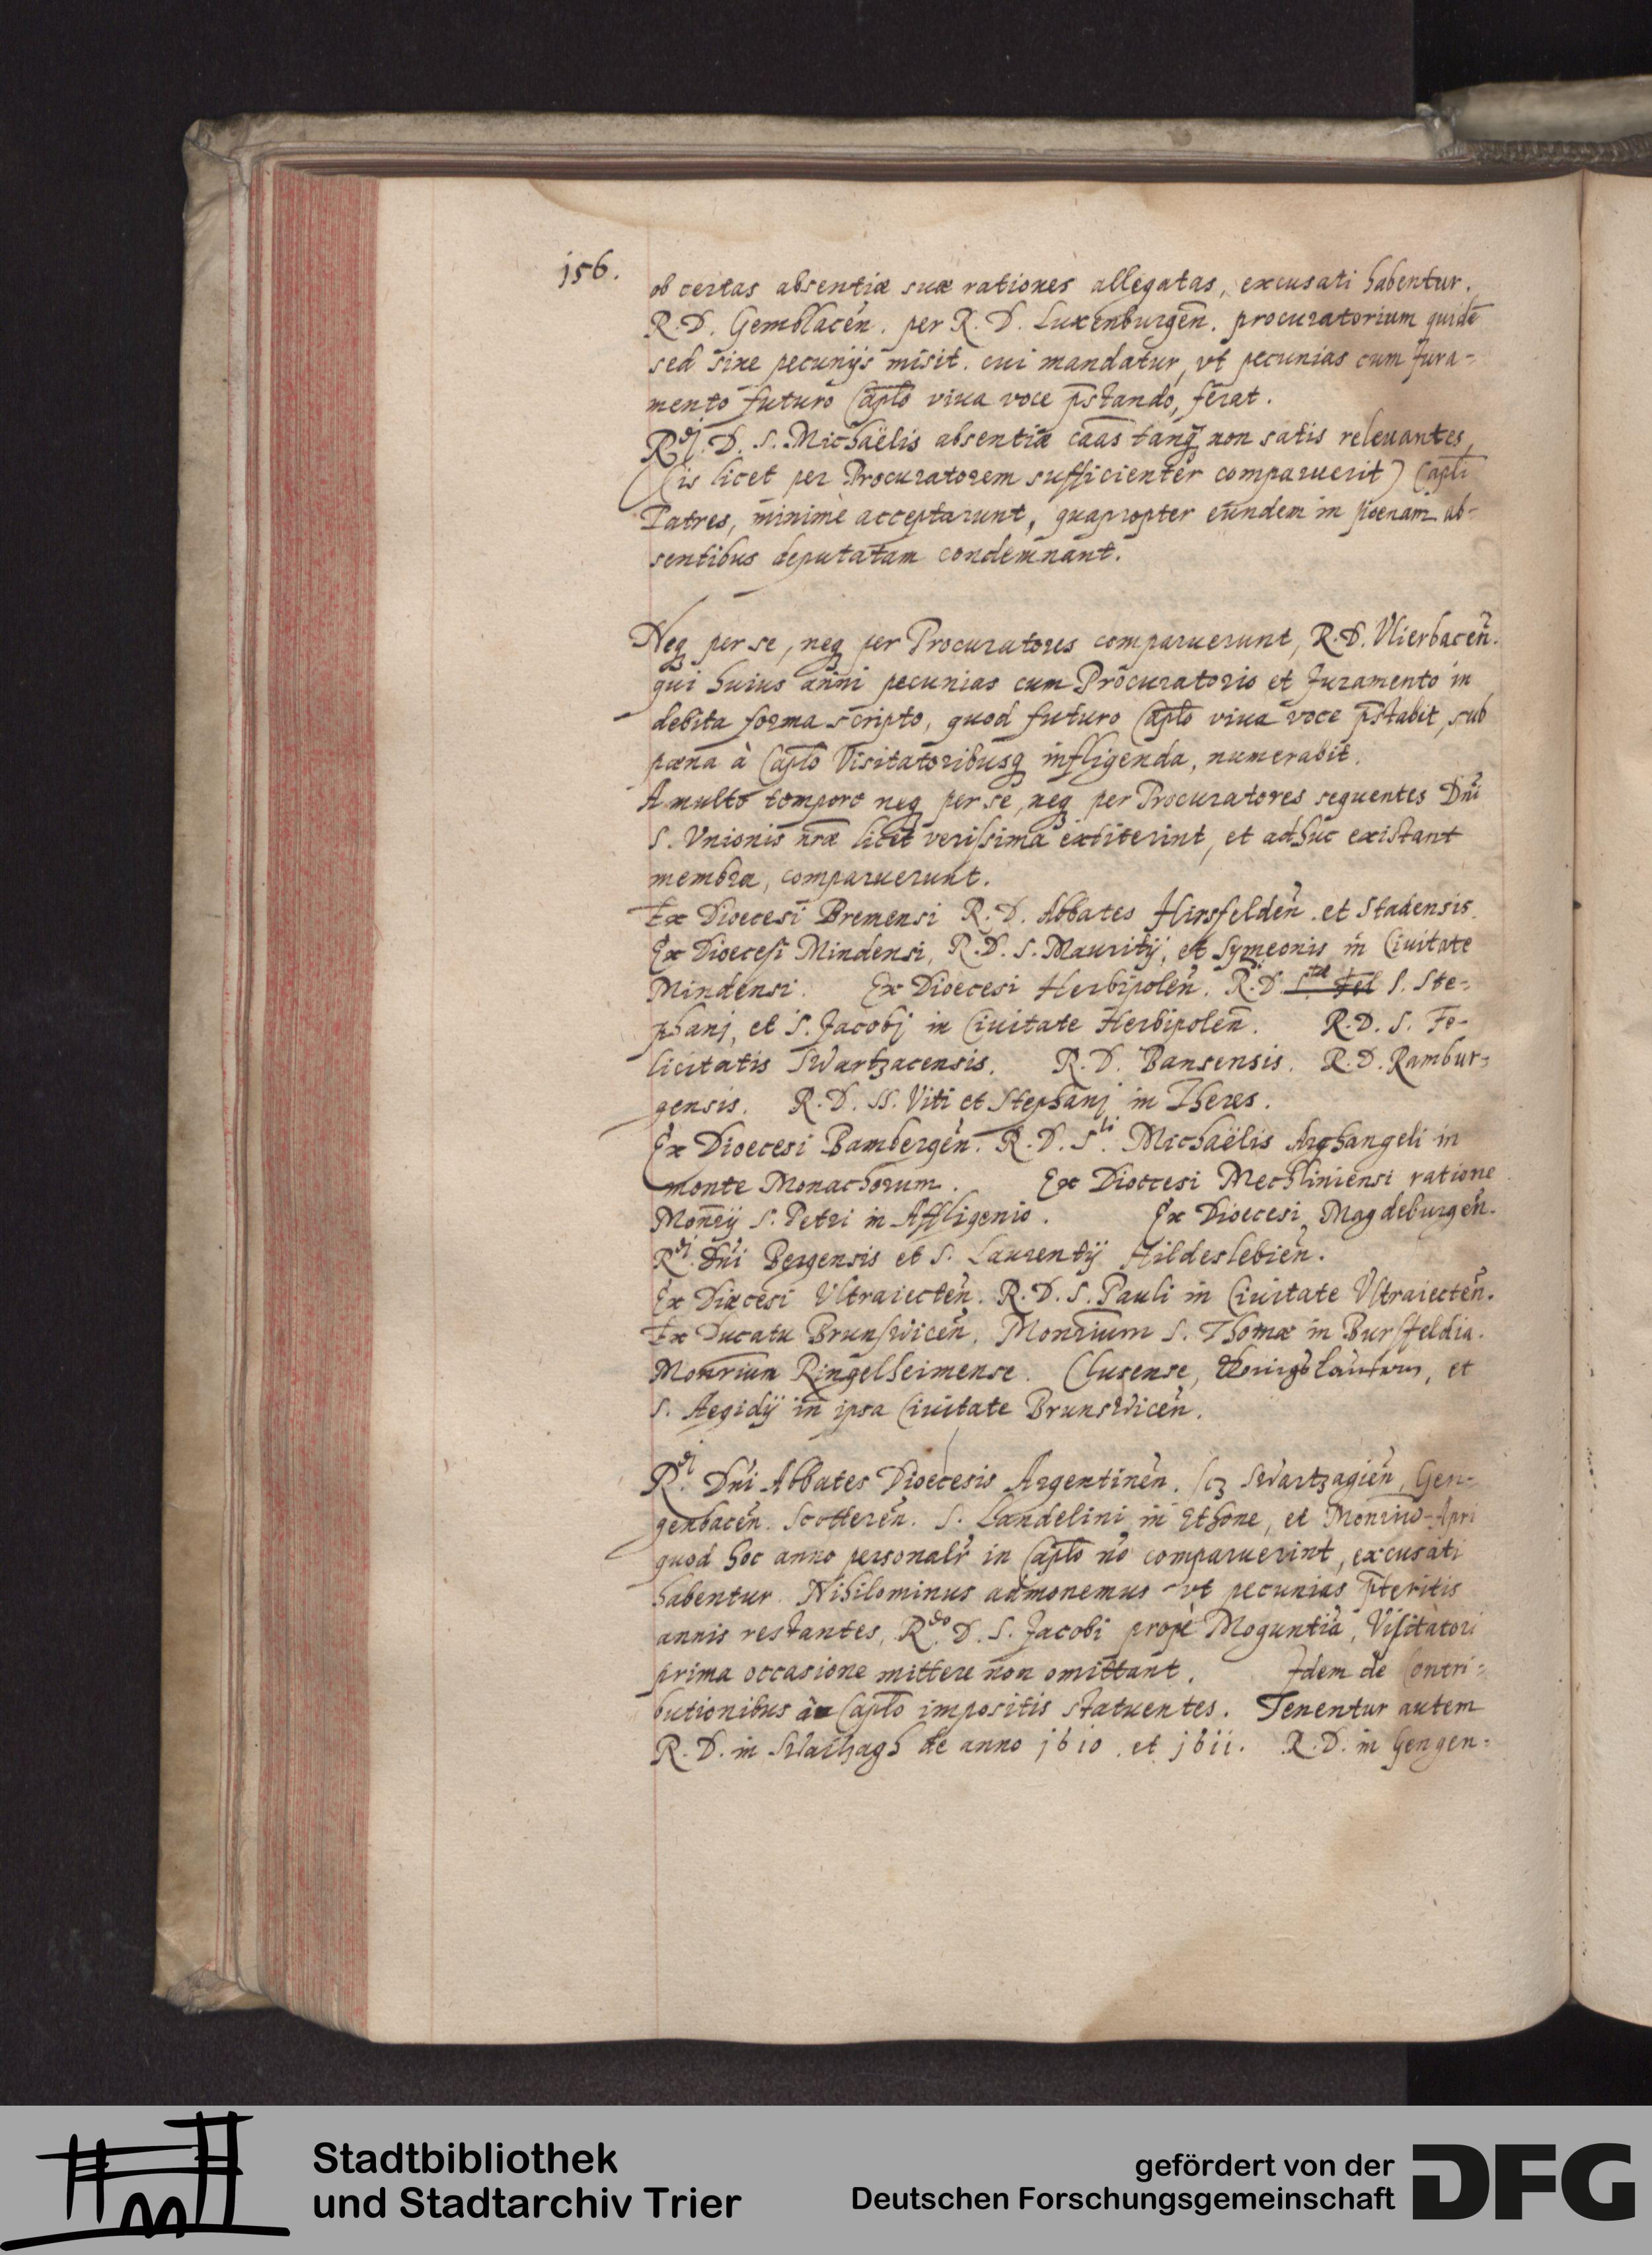 156.
ob certas absentiæ suæ rationes allegatas, excusati habentur.
R.D. Gemblacen̄. per R.D. Luxenburgen̄. procuratorium quidē
sed sine pecunijs misit. cui mandatur, vt pecunias cum Jura-
mento futuro Capl̄o viua voce p̄stando, ferat.
R.di D. S. Michaëlis absentiæ caās tanq̄ non satis releuantes,
(is licet per Procuratorem sufficienter comparuerit) Capl̄i
Patres, minimè acceptarunt, quapropter eundem in poenam ab-
sentibus deputatam condemnant.
Neq₃ per se, neq₃ per Procuratores comparuerunt, R.D. Vlierbacen̄.
qui huius anni pecunias cum Procuratorio et Juramento in
debita forma scripto, quod futuro Capl̄o viua voce p̄stabit, sub
pœna à Capl̄o Visitatoribusq₃ infligenda, numerabit.
A multo tempore neq₃ per se, neq₃ per Procuratores sequentes Dn̄i
S. Vnionis nr̄æ licet verissima extiterint, et adhuc existant
membra, comparuerunt.
Ex Dioecesi Bremensi R.D. Abbates Hirsfelden̄. et Stadensis.
Ex Dioecesi Mindensi, R.D. S. Mauritij, et Symeonis in Ciuitate
Mindensi. Ex Dioecesi Herbipolen̄. R.D. S. Fel S. Ste-
phanj, et S. Jacobj in Ciuitate Herbipolen̄. R.D. S. Fe-
licitatis Swartzacensis. R.D. Bansensis. R.D. Rambur-
gensis. R.D. SS. Viti et Stephanj in Theres.
Ex Dioecesi Bambergen̄. R.D. S.ti Michaëlis Arghangeli in
monte Monachorum. Ex Dioecesi Mechliniensi ratione
Mon̄rij S. Petri in Affligenio. Ex Dioecesi Magdeburgen̄.
R.di Dn̄i Bergensis et S. Laurentij Hildeslebien̄.
Ex Diœcesi Vltraiecten̄. R.D. S. Pauli in Ciuitate Vltraiecten̄.
Ex Ducatu Brunswicen̄. Mon̄rium S. Thomæ in Bursfeldia.
Mon̄rium Ringelheimense. Clusense, et
S. Aegidij in ipsa Ciuitate Brunswicen̄.
R.di Dn̄i Abbates Dioecesis Argentinen̄. scz Swartzagien̄, Gen-
genbacen̄. Scotteren̄. S. Landelini in Ethone, et Monriō-Apri
quod hoc anno personalr̄ in Capl̄o nō comparuerint, excusati
habentur. Nihilominus admonemus vt pecunias p̄teritis
annis restantes, R.do D. S. Jacobi propè Moguntiā, Visitatori
prima occasione mittere non omittant. Idem de Contri-
butionibus in Capl̄o impositis statuentes. Tenentur autem
R.D. in Swarzagh de anno 1610. et 1611. R.D. in Gengen-
Stadtbibliothek
und Stadtarchiv Trier
gefördert von der
Deutschen Forschungsgemeinschaft
DFG